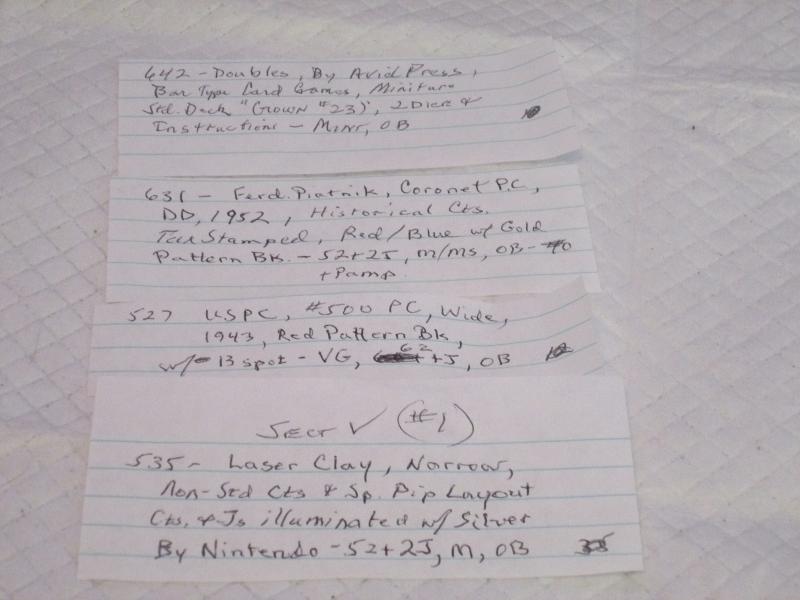 642 - Doubles, By Avid Press,
Bar Type Card Games, Miniture
Std. Deck "Crown #23", 2 Dice &
Instructions - Mint, OB
631 - Ferd. Piatnik, Coronet P.C,
DD, 1952, Historical Cts.
Tax Stamped, Red/Blue w/ Gold
Pattern Bk. - 52+2J, M/MS, OB -
+ Pamp.
527 USPC, #500 PC, Wide,
1943, Red Pattern Bk,
w/ 13 spot - VG, 62 + J, OB
Sect V (#1)
535 - Laser Clay, Narrow,
Non-Std Cts & Sp. Pip Layout
Cts. & Js illuminated w/ Silver
By Nintendo - 52+2J, M, OB